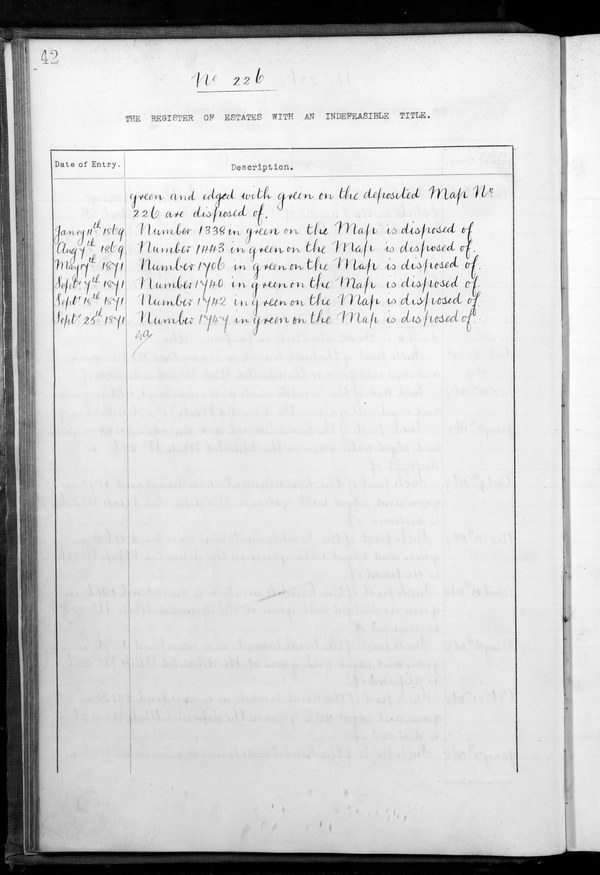 42
No 226
THE REGISTER OF ESTATES WITH AN INDEFEASIBLE TITLE.
Date of Entry. Description.
green and edged with green on the deposited Map No
226 are disposed of.
Jany 11th 1869 Number 1338 in green on the Map is disposed of
Augt 7th 1869 Number 1443 in green on the Map is disposed of.
May 17th 1871 Number 1706 in green on the Map is disposed of.
Septr 7th 1871 Number 1740 in green on the Map is disposed of.
Septr 15th 1871 Number 1742 in green on the Map is disposed of
Septr 25th 1871 Number 1747 in green on the Map is disposed of.